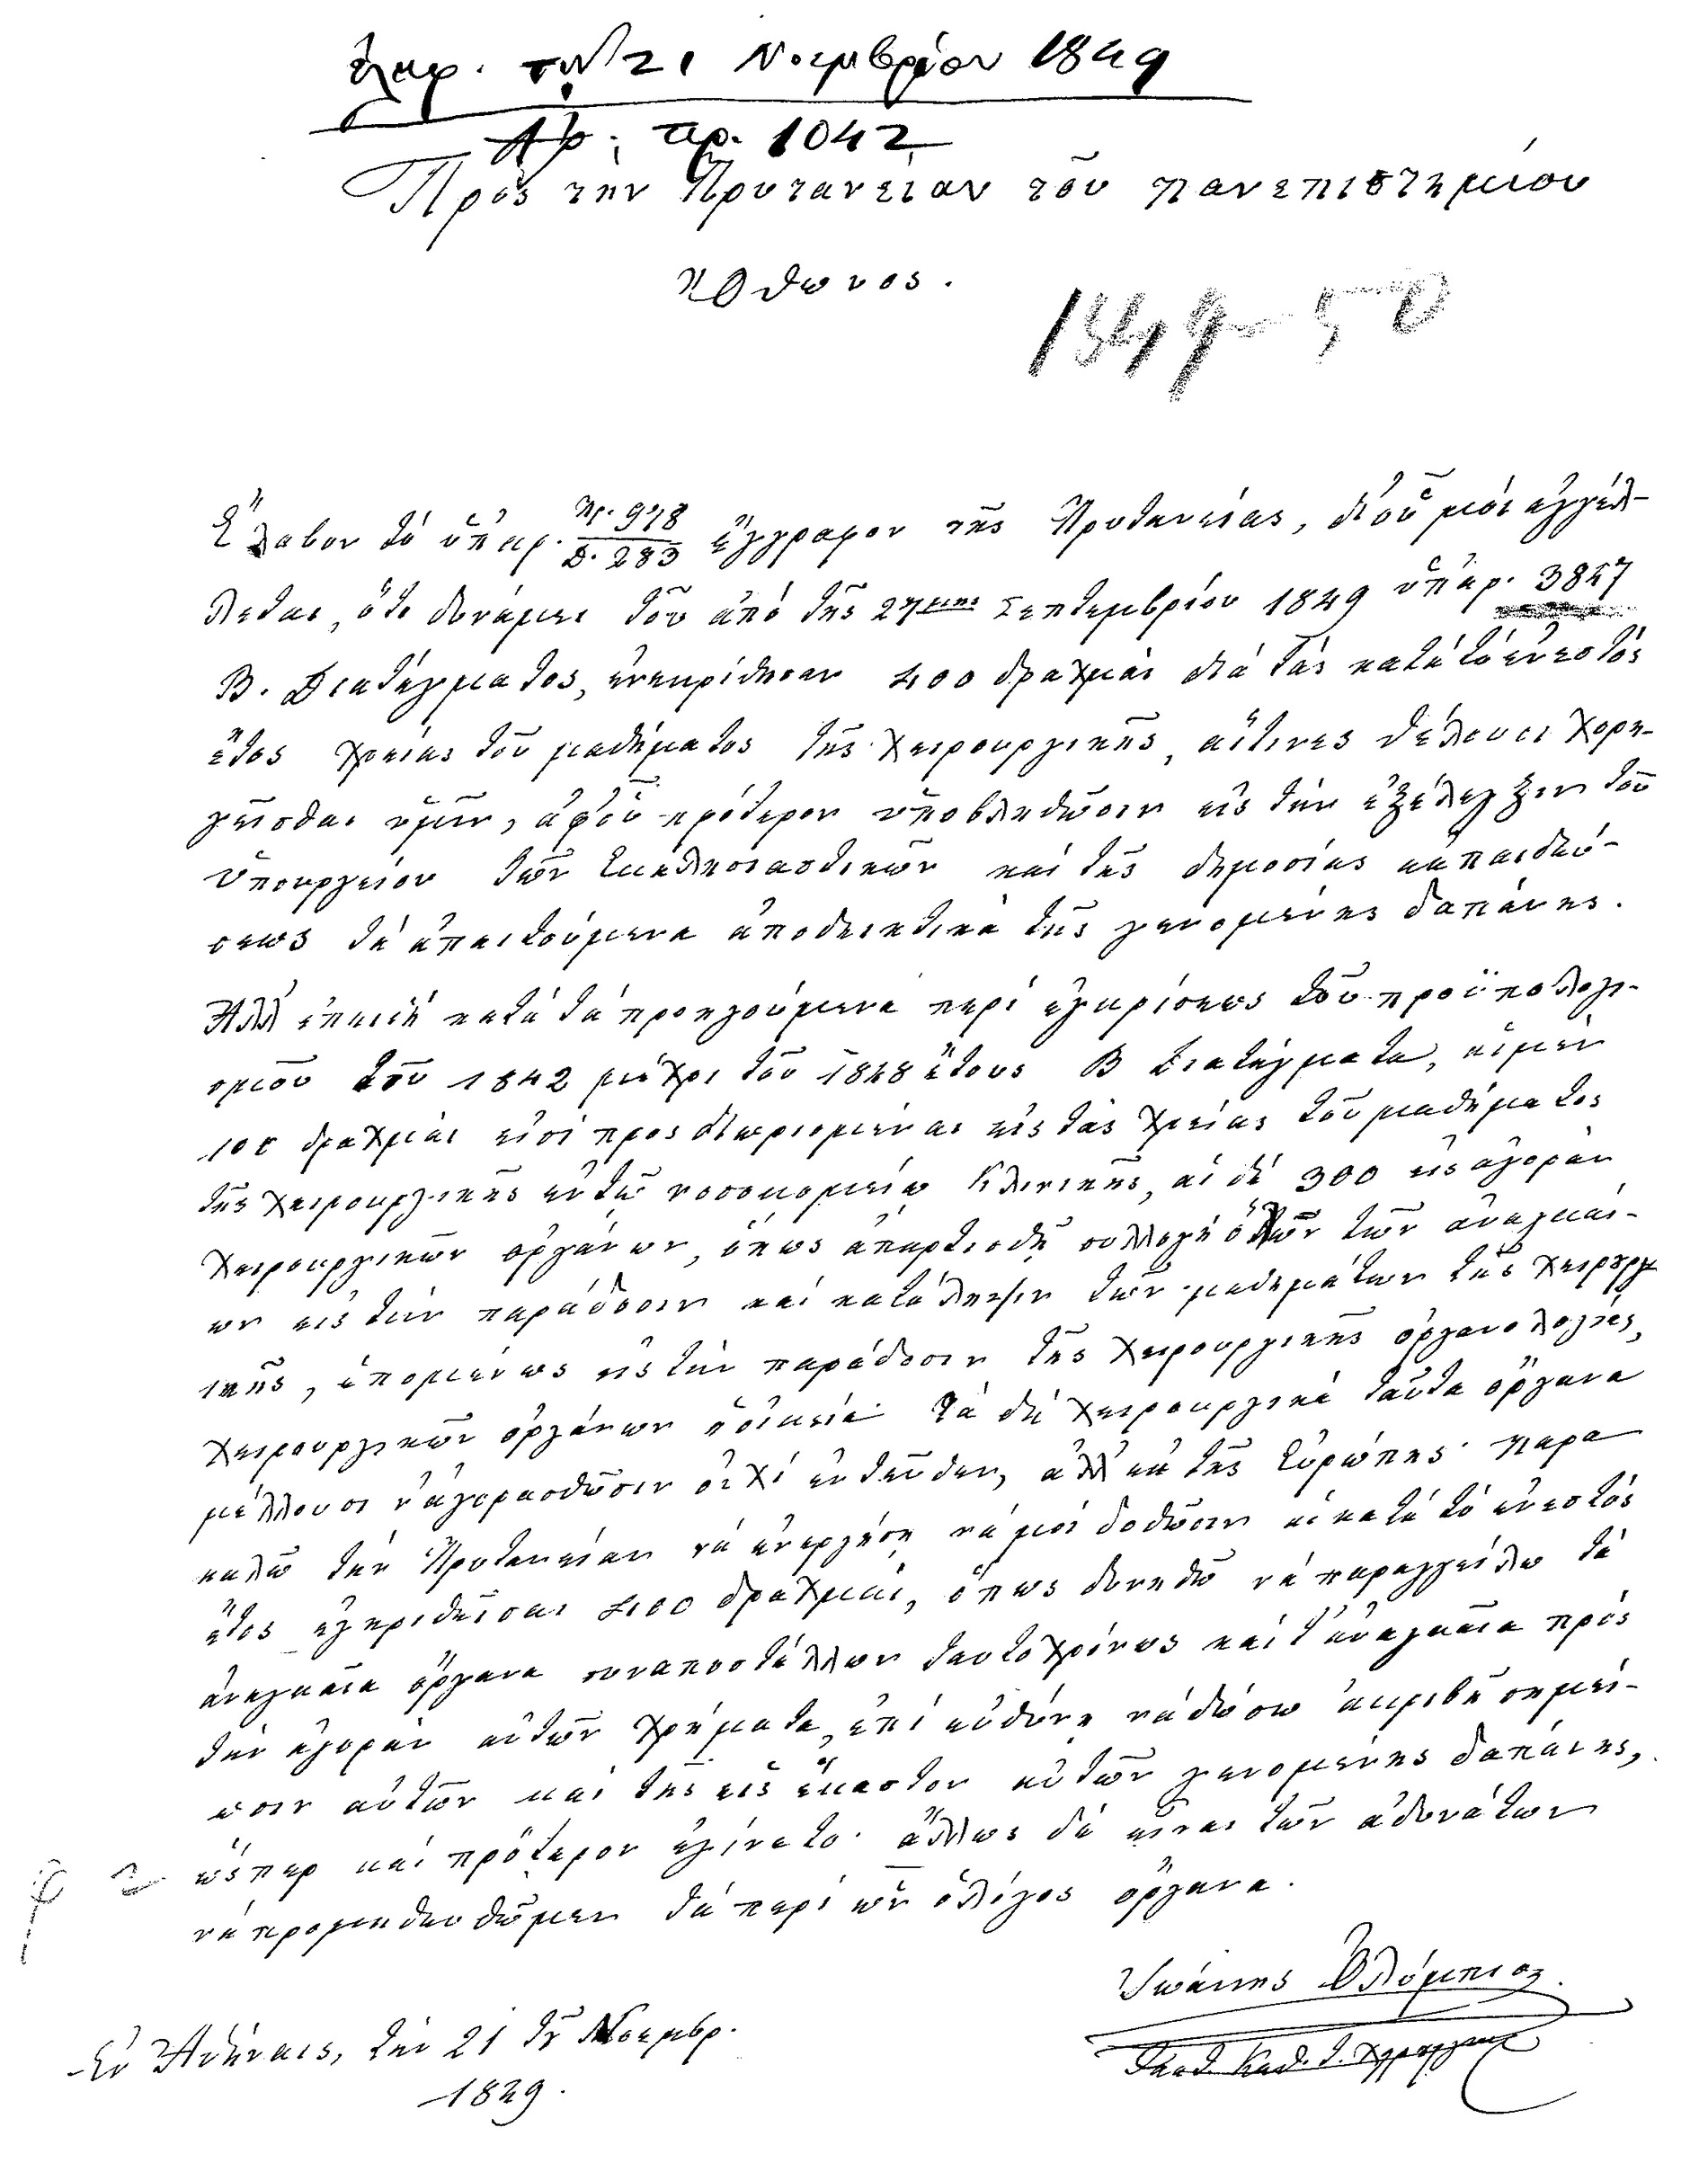 ἐλήφ. τῇ 21 Νοεμβρίου 1849
Ἀρ. πρ. 1042
Πρὸς τὴν Πρυτανείαν τοῦ πανεπιστημίου
Ὄθωνος.
1849-50
Ἔλαβον τὸ ὑπ' ἀρ. Πρ. 978 / Δ. 283 ἔγγραφον τῆς Πρυτανείας, δι' οὗ μοὶ ἀγγέλ-
λεται, ὅτι δυνάμει τοῦ ἀπὸ τῆς 27 Σεπτεμβρίου 1849 ὑπ' ἀρ. 3847
Β. Διατάγματος, ἐνεκρίθησαν 400 δραχμαὶ διὰ τὰς κατὰ τὸ ἐνεστὸς
ἔτος χρείας τοῦ μαθήματος τῆς χειρουργικῆς, αἵτινες θέλουσι χορη-
γεῖσθαι ὑμῖν, ἀφοῦ πρότερον ὑποβληθῶσιν εἰς τὴν ἐξέλεγξιν τοῦ
ὑπουργείου τῶν Ἐκκλησιαστικῶν καὶ τῆς δημοσίας ἐκπαιδεύ-
σεως τὰ ἀπαιτούμενα ἀποδεικτικὰ τῆς γενομένης δαπάνης.
Ἀλλ' ἐπειδὴ κατὰ τὰ προηγούμενα περὶ ἐγκρίσεως τοῦ προϋπολογι-
σμοῦ τοῦ 1842 μέχρι τοῦ 1848 ἔτους Β Διατάγματα, αἱ μὲν
100 δραχμαὶ εἰσὶ προσδιωρισμέναι εἰς τὰς χρείας τοῦ μαθήματος
τῆς χειρουργικῆς ἐν τῷ νοσοκομείῳ Κλινικῆς, αἱ δὲ 300 εἰς ἀγορὰν
χειρουργικῶν ὀργάνων, ὅπως ἀπαρτισθῇ συλλογὴ ὅλων τῶν ἀναγκαί-
ων εἰς τὴν παράδοσιν καὶ κατάληψιν τῶν μαθημάτων τῆς χειρουργ
ικῆς, ἑπομένως εἰς τὴν παράδοσιν τῆς χειρουργικῆς ὀργανολογίας,
χειρουργικῶν ὀργάνων τὰ δὲ χειρουργικὰ ταῦτα ὄργανα
μέλλουσι ν' ἀγορασθῶσιν οὐχὶ ἐντεῦθεν, ἀλλ' ἐκ τῆς Εὐρώπης· παρα
καλῶ τὴν Πρυτανείαν νὰ ἐνεργήσῃ νὰ μοὶ δοθῶσιν αἱ κατὰ τὸ ἐνεστὸς
ἔτος ἐγκριθεῖσαι 400 δραχμαί, ὅπως δυνηθῶ νὰ παραγγείλω τὰ
ἀναγκαῖα ὄργανα συναποστέλλων ταυτοχρόνως καὶ τ' ἀναγκαῖα πρὸς
τὴν ἀγορὰν αὐτῶν χρήματα, ἐπὶ εὐθύνῃ νὰ δώσω ἀκριβῆ σημεί-
ωσιν αὐτῶν καὶ τῆς εἰς ἕκαστον αὐτῶν γενομένης δαπάνης,
ὥσπερ καὶ πρότερον ἐγίνετο· ἄλλως δὲ εἶναι τῶν ἀδυνάτων
νὰ προμηθευθῶμεν τὰ περὶ ὧν ὁ λόγος ὄργανα.
Ἰωάννης Ὀλύμπιος.
Ἐν Ἀθήναις, τὴν 21 τοῦ Νοεμβρ.
1849.